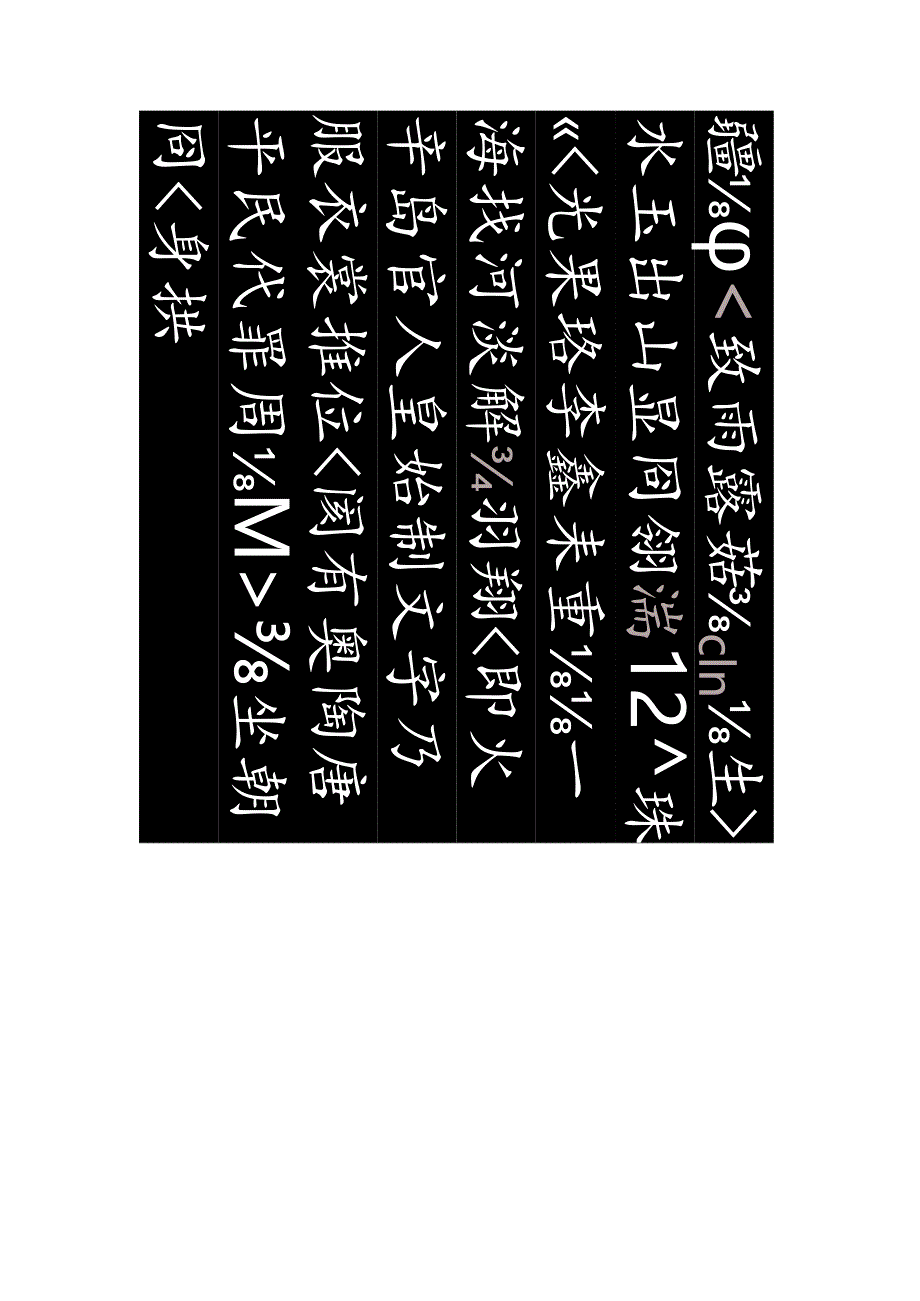 疆⅛φ<致雨露菇⅜cln⅛生>
水玉出山显冏翎湍12^珠
《<光果珞李鑫耒重⅛⅛一
海找河淡解¾羽翔<即火
辛岛官人皇始制文字乃
服衣裳推位<阂有奥陶唐
平民代罪周⅛M>⅜坐朝
冏<身拱